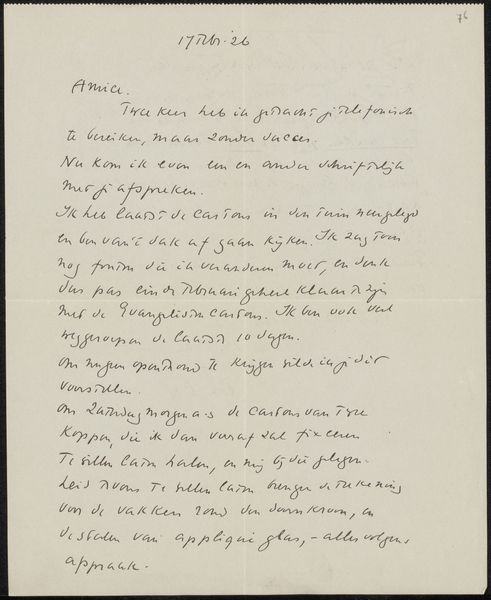 76
17 Febr. 26
Amice.
Twee keer heb ik getracht je telefonisch
te bereiken, maar zonder succes.
Nu kom ik even een en ander schriftelijk
met je afspreken.
Ik heb laatst de cartons in den tuin neergelegd
en ben van 't dak af gaan kijken. Ik zag toen
nog fouten die ik veranderen moet, en denk
dus pas einde Februari geheel klaar te zijn
met de Evangelisten cartons. Ik ben ook veel
weggeroepen de laatste 10 dagen.
Om nu geen oponthoud te krijgen wilde ik je dit
voorstellen.
Om Zaterdagmorgen a.s. de cartons van twee
koppen, die ik dan vooraf zal fixeeren
te willen laten halen, en mij bij die gelegen-
heid tevens te willen laten brengen de teekening
voor de vakken rond den doornkroon, en
de stalen van appliqué glas, – alles volgens
afspraak.